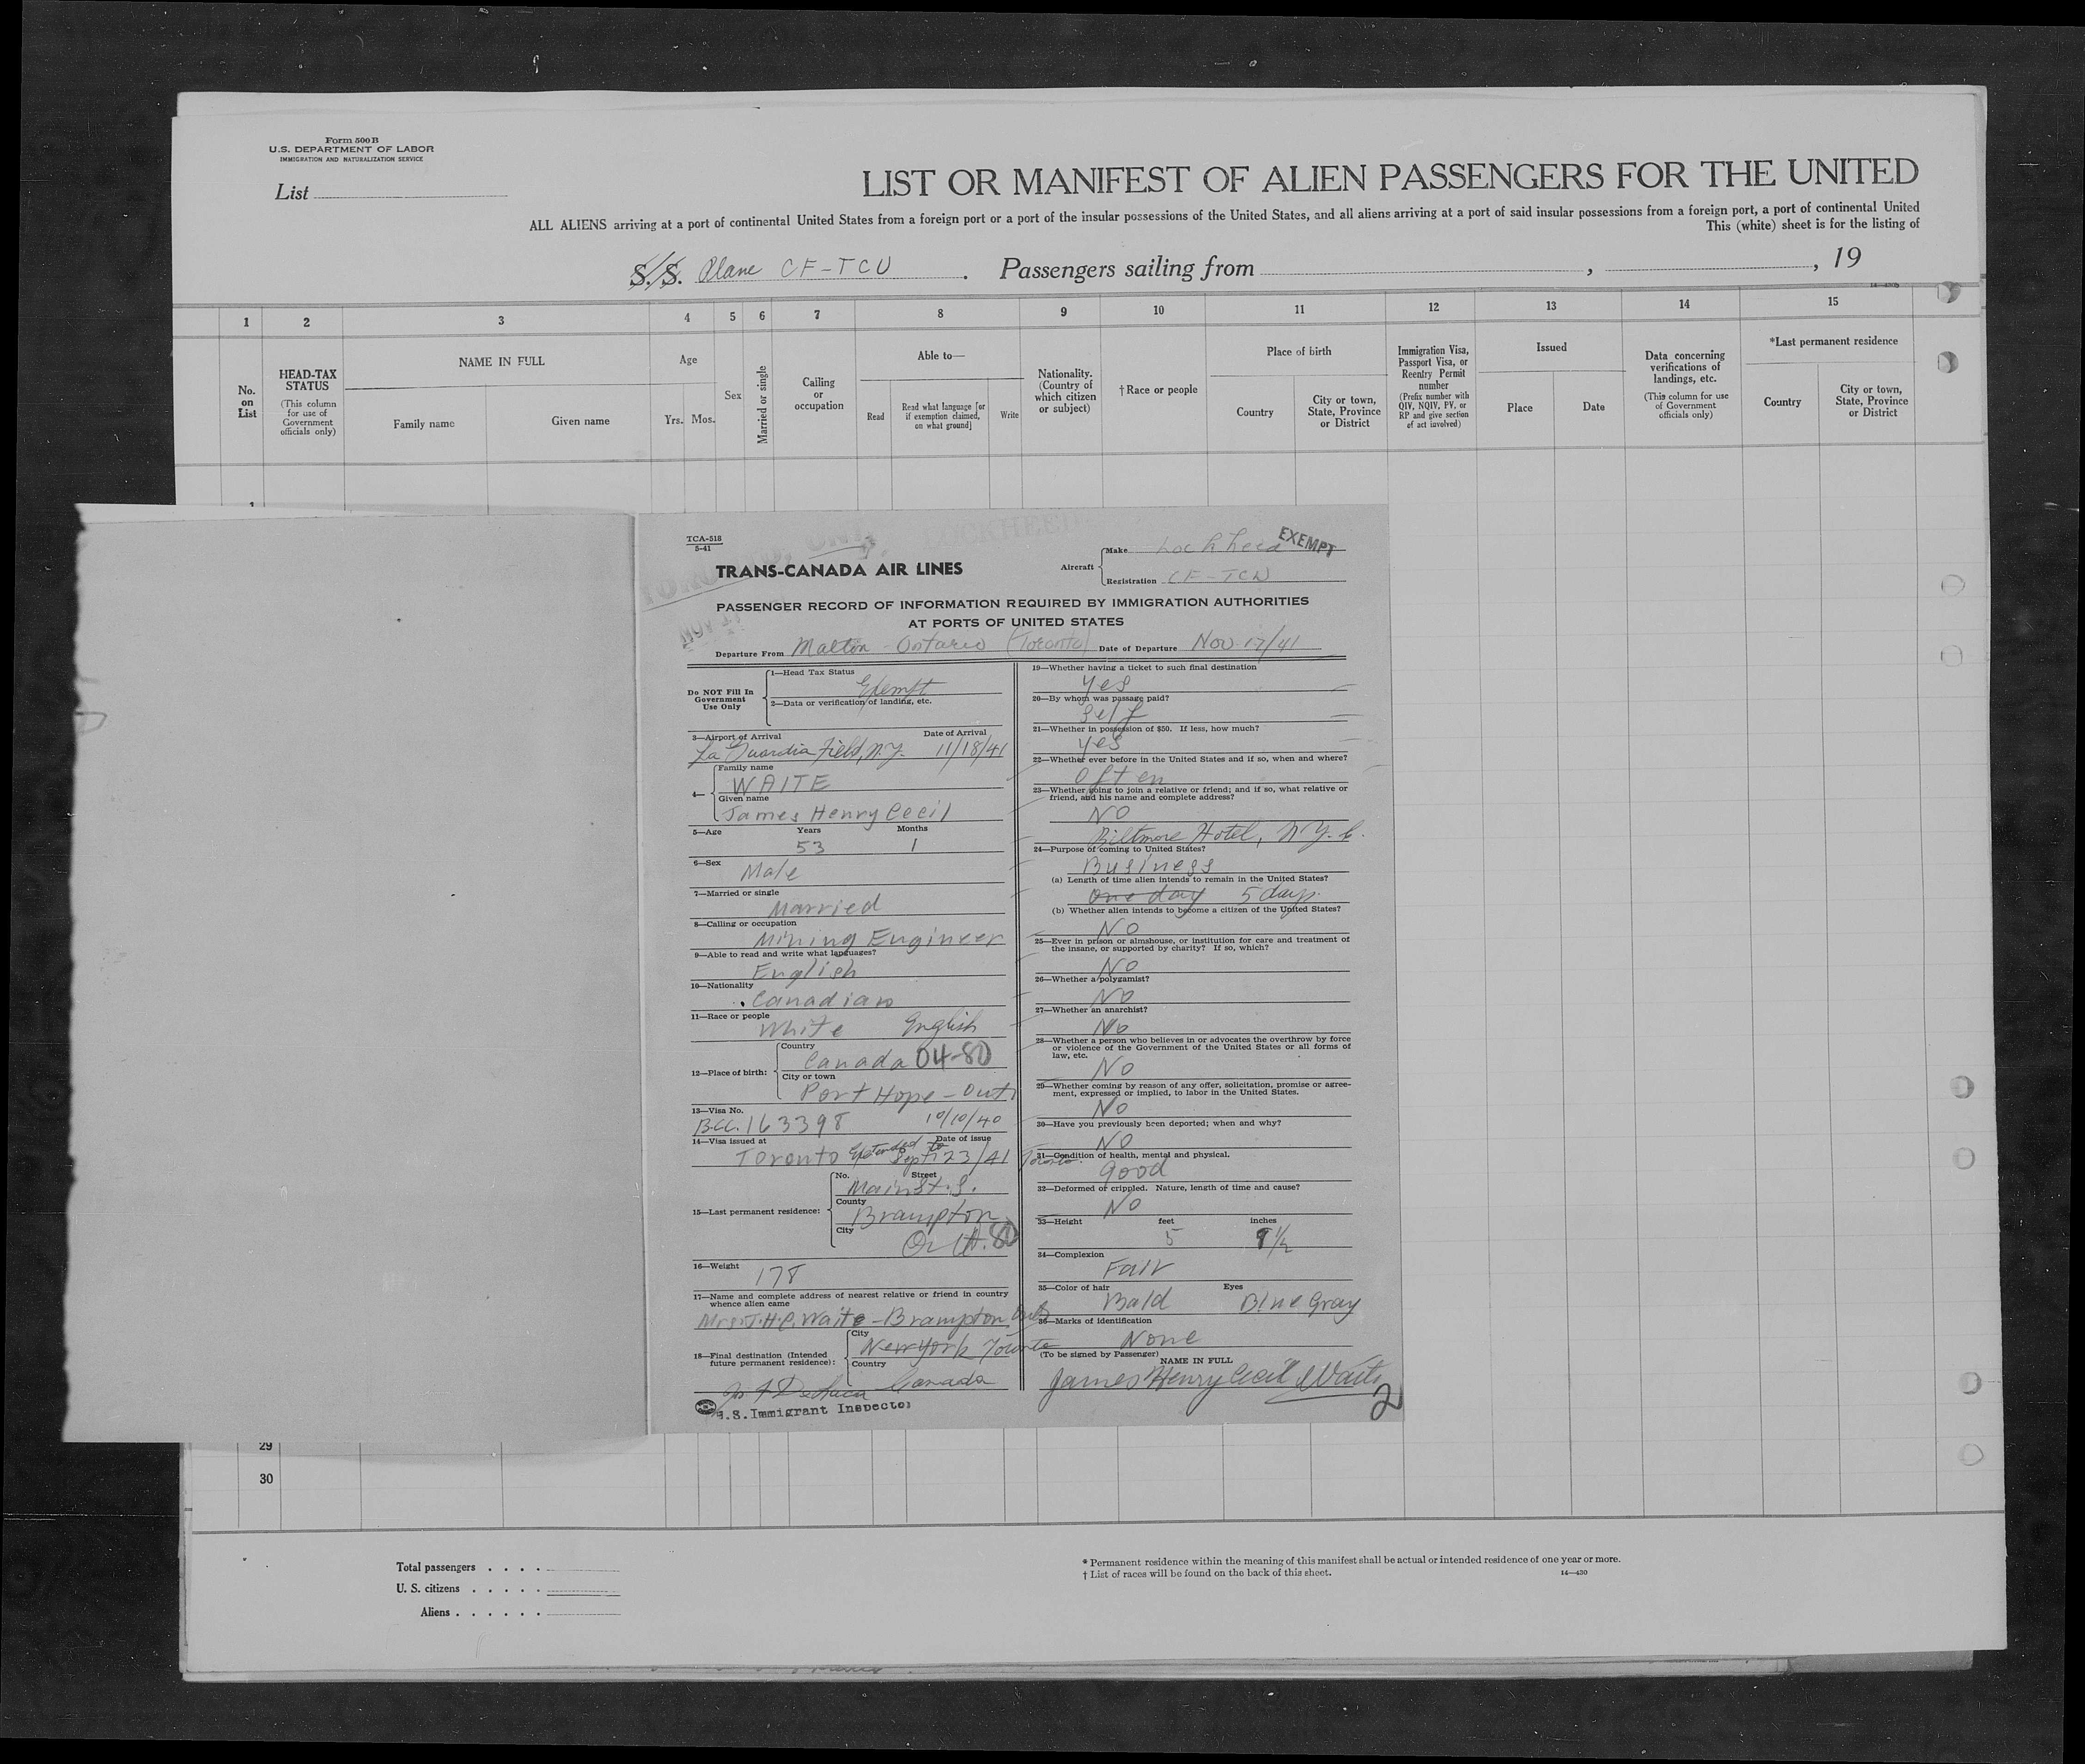 Form 500 B
U. S. DEPARTMENT OF LABOR
IMMIGRATION AND NATURALIZATION SERVICE
List
LIST OR MANIFEST OF ALIEN PASSENGERS FOR THE UNITED
ALL ALIENS arriving at a port of continental United States from a foreign port or a port of the insular possessions of the United States, and all aliens arriving at a port of said insular possessions from a foreign port, a port of continental United
This (white) sheet is for the listing of
S. S. Plane CF-TCU . Passengers sailing from , , 19
1 2 3 4 5 6 7 8 9 10 11 12 13 14 15
No. on List
HEAD-TAX STATUS
(This column for use of Government officials only)
NAME IN FULL
Family name
Given name
Age
Yrs. Mos.
Sex
Married or single
Calling or occupation
Able to—
Read
Read what language [or if exemption claimed, on what ground]
Write
Nationality. (Country of which citizen or subject)
† Race or people
Place of birth
Country
City or town, State, Province or District
Immigration Visa, Passport Visa, or Reentry Permit number
(Prefix number with QIV, NQIV, PV, or RP and give section of act involved)
Issued
Place
Date
Data concerning verifications of landings, etc.
(This column for use of Government officials only)
*Last permanent residence
Country
City or town, State, Province or District
TCA-518
5-41
TRANS-CANADA AIR LINES
Aircraft
Make Lockheed
EXEMPT
Registration CF-TCU
PASSENGER RECORD OF INFORMATION REQUIRED BY IMMIGRATION AUTHORITIES
AT PORTS OF UNITED STATES
Departure From Malton - Ontario (Toronto) Date of Departure Nov. 17/41
Do NOT Fill In
Government
Use Only
1—Head Tax Status
Exempt
2—Data or verification of landing, etc.
3—Airport of Arrival Date of Arrival
La Guardia Field, N.Y. 11/18/41
4—
Family name
WAITE
Given name
James Henry Cecil
5—Age Years Months
53 1
6—Sex
Male
7—Married or single
Married
8—Calling or occupation
Mining Engineer
9—Able to read and write what languages?
English
10—Nationality
Canadian
11—Race or people
White English
12—Place of birth:
Country
Canada 04-80
City or town
Port Hope - Ont
13—Visa No.
B.C.C. 163398 10/10/40
14—Visa issued at Date of issue
Toronto Extended to Sept 23/41 Toronto.
15—Last permanent residence:
No. Street
Main St. S.
County
Brampton
City
Ont. 80
16—Weight
178
17—Name and complete address of nearest relative or friend in country
whence alien came
Mrs. J.H.C. Waite - Brampton Ont
18—Final destination (Intended
future permanent residence):
City
New York Toronto
Country
Canada
U.S. Immigrant Inspector
19—Whether having a ticket to such final destination
Yes
20—By whom was passage paid?
Self
21—Whether in possession of $50. If less, how much?
Yes
22—Whether ever before in the United States and if so, when and where?
Often
23—Whether going to join a relative or friend; and if so, what relative or
friend, and his name and complete address?
No
Biltmore Hotel, N.Y.C.
24—Purpose of coming to United States?
Business
(a) Length of time alien intends to remain in the United States?
One day 5 days.
(b) Whether alien intends to become a citizen of the United States?
No
25—Ever in prison or almshouse, or institution for care and treatment of
the insane, or supported by charity? If so, which?
No
26—Whether a polygamist?
No
27—Whether an anarchist?
No
28—Whether a person who believes in or advocates the overthrow by force
or violence of the Government of the United States or all forms of
law, etc.
No
29—Whether coming by reason of any offer, solicitation, promise or agree-
ment, expressed or implied, to labor in the United States.
No
30—Have you previously been deported; when and why?
No
31—Condition of health, mental and physical.
good
32—Deformed or crippled. Nature, length of time and cause?
No
33—Height feet inches
5 9 1/2
34—Complexion
Fair
35—Color of hair Eyes
Bald Blue Gray
36—Marks of identification
None
(To be signed by Passenger)
NAME IN FULL
James Henry Cecil Waite
2
29
30
Total passengers . . . .
U. S. citizens . . . . .
Aliens . . . . . .
* Permanent residence within the meaning of this manifest shall be actual or intended residence of one year or more.
† List of races will be found on the back of this sheet.
14—430